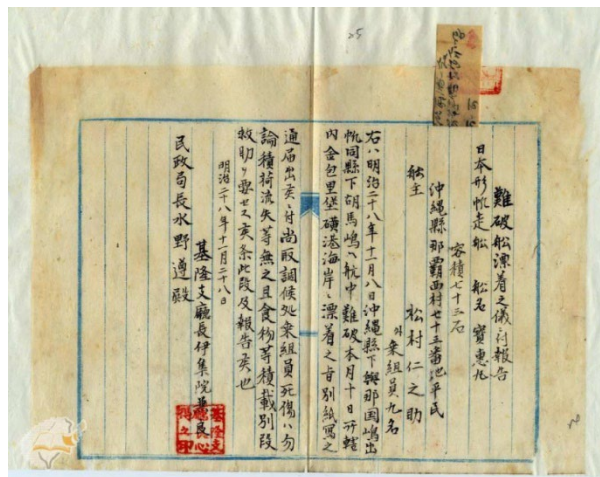 難破船漂着之儀ニ付報告
日本形帆走船　船名　寳惠丸
容積七十三石
沖縄縣那覇西村七十五番地平民
船主　松村仁之助
外乗組員九名
右ハ明治二十八年十一月八日沖縄縣下與那国嶋出
帆同縣下胡馬嶋ヘ航中難破本月十日所轄
内金包里堡磺港海岸ニ漂着之旨別紙写之
通届出候ニ付尚取調候処乗組員死傷ハ勿
論積荷流失等無之且食物等積載別段
救助ヲ要セス候条此段及報告候也
明治二十八年十一月二十八日
基隆支廳長伊集院兼良
民政局長水野遵殿
25